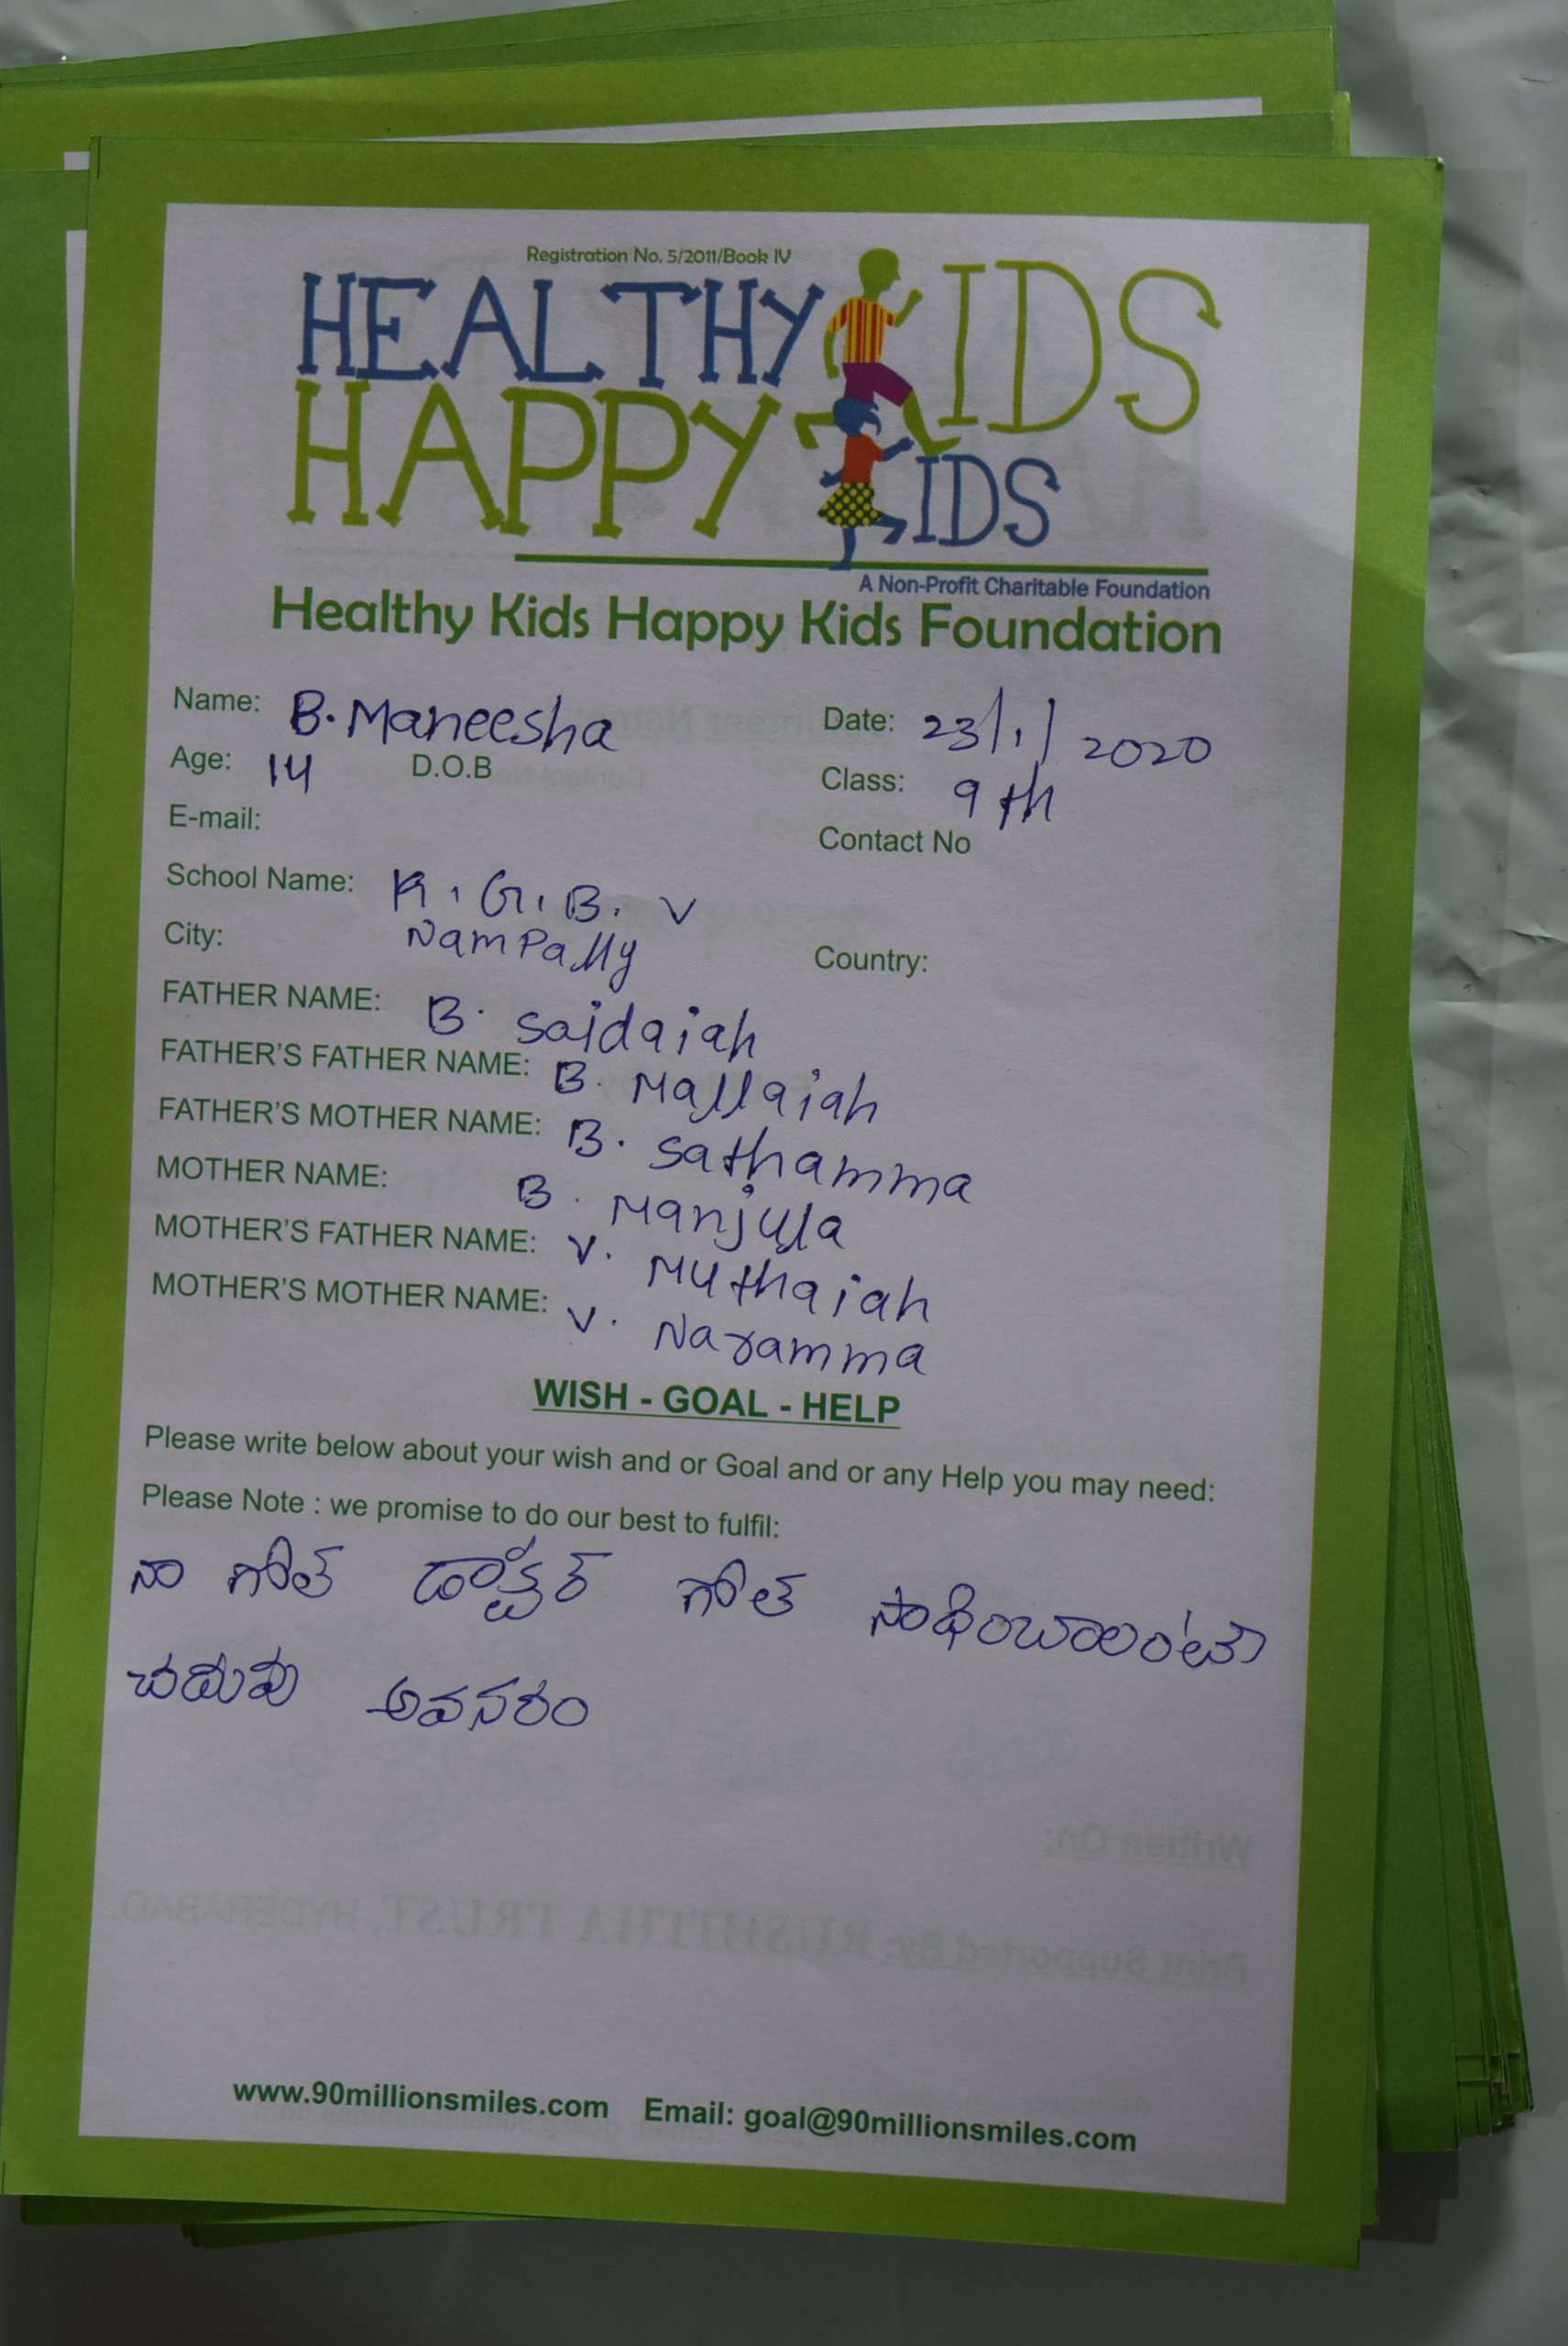 Registration No. 5/2011/Book IV
HEALTHY KIDS
HAPPY KIDS
A Non-Profit Charitable Foundation
Healthy Kids Happy Kids Foundation
Name: B. Maneesha Date: 23/1/2020
Age: 14 D.O.B Class: 9th
E-mail: Contact No
School Name: K. G. B. V
City: Nampally Country:
FATHER NAME: B. Saidaiah
FATHER'S FATHER NAME: B. Mallaiah
FATHER'S MOTHER NAME: B. Sathamma
MOTHER NAME: B. Manjula
MOTHER'S FATHER NAME: V. Muthaiah
MOTHER'S MOTHER NAME: V. Naramma
WISH - GOAL - HELP
Please write below about your wish and or Goal and or any Help you may need:
Please Note : we promise to do our best to fulfil:
నా గోల్ డాక్టర్ గోల్ సాధించాలంటే
చదువు అవసరం
Written On:
Print Supported By: RUSHITHA TRUST, HYDERABAD
www.90millionsmiles.com Email: goal@90millionsmiles.com